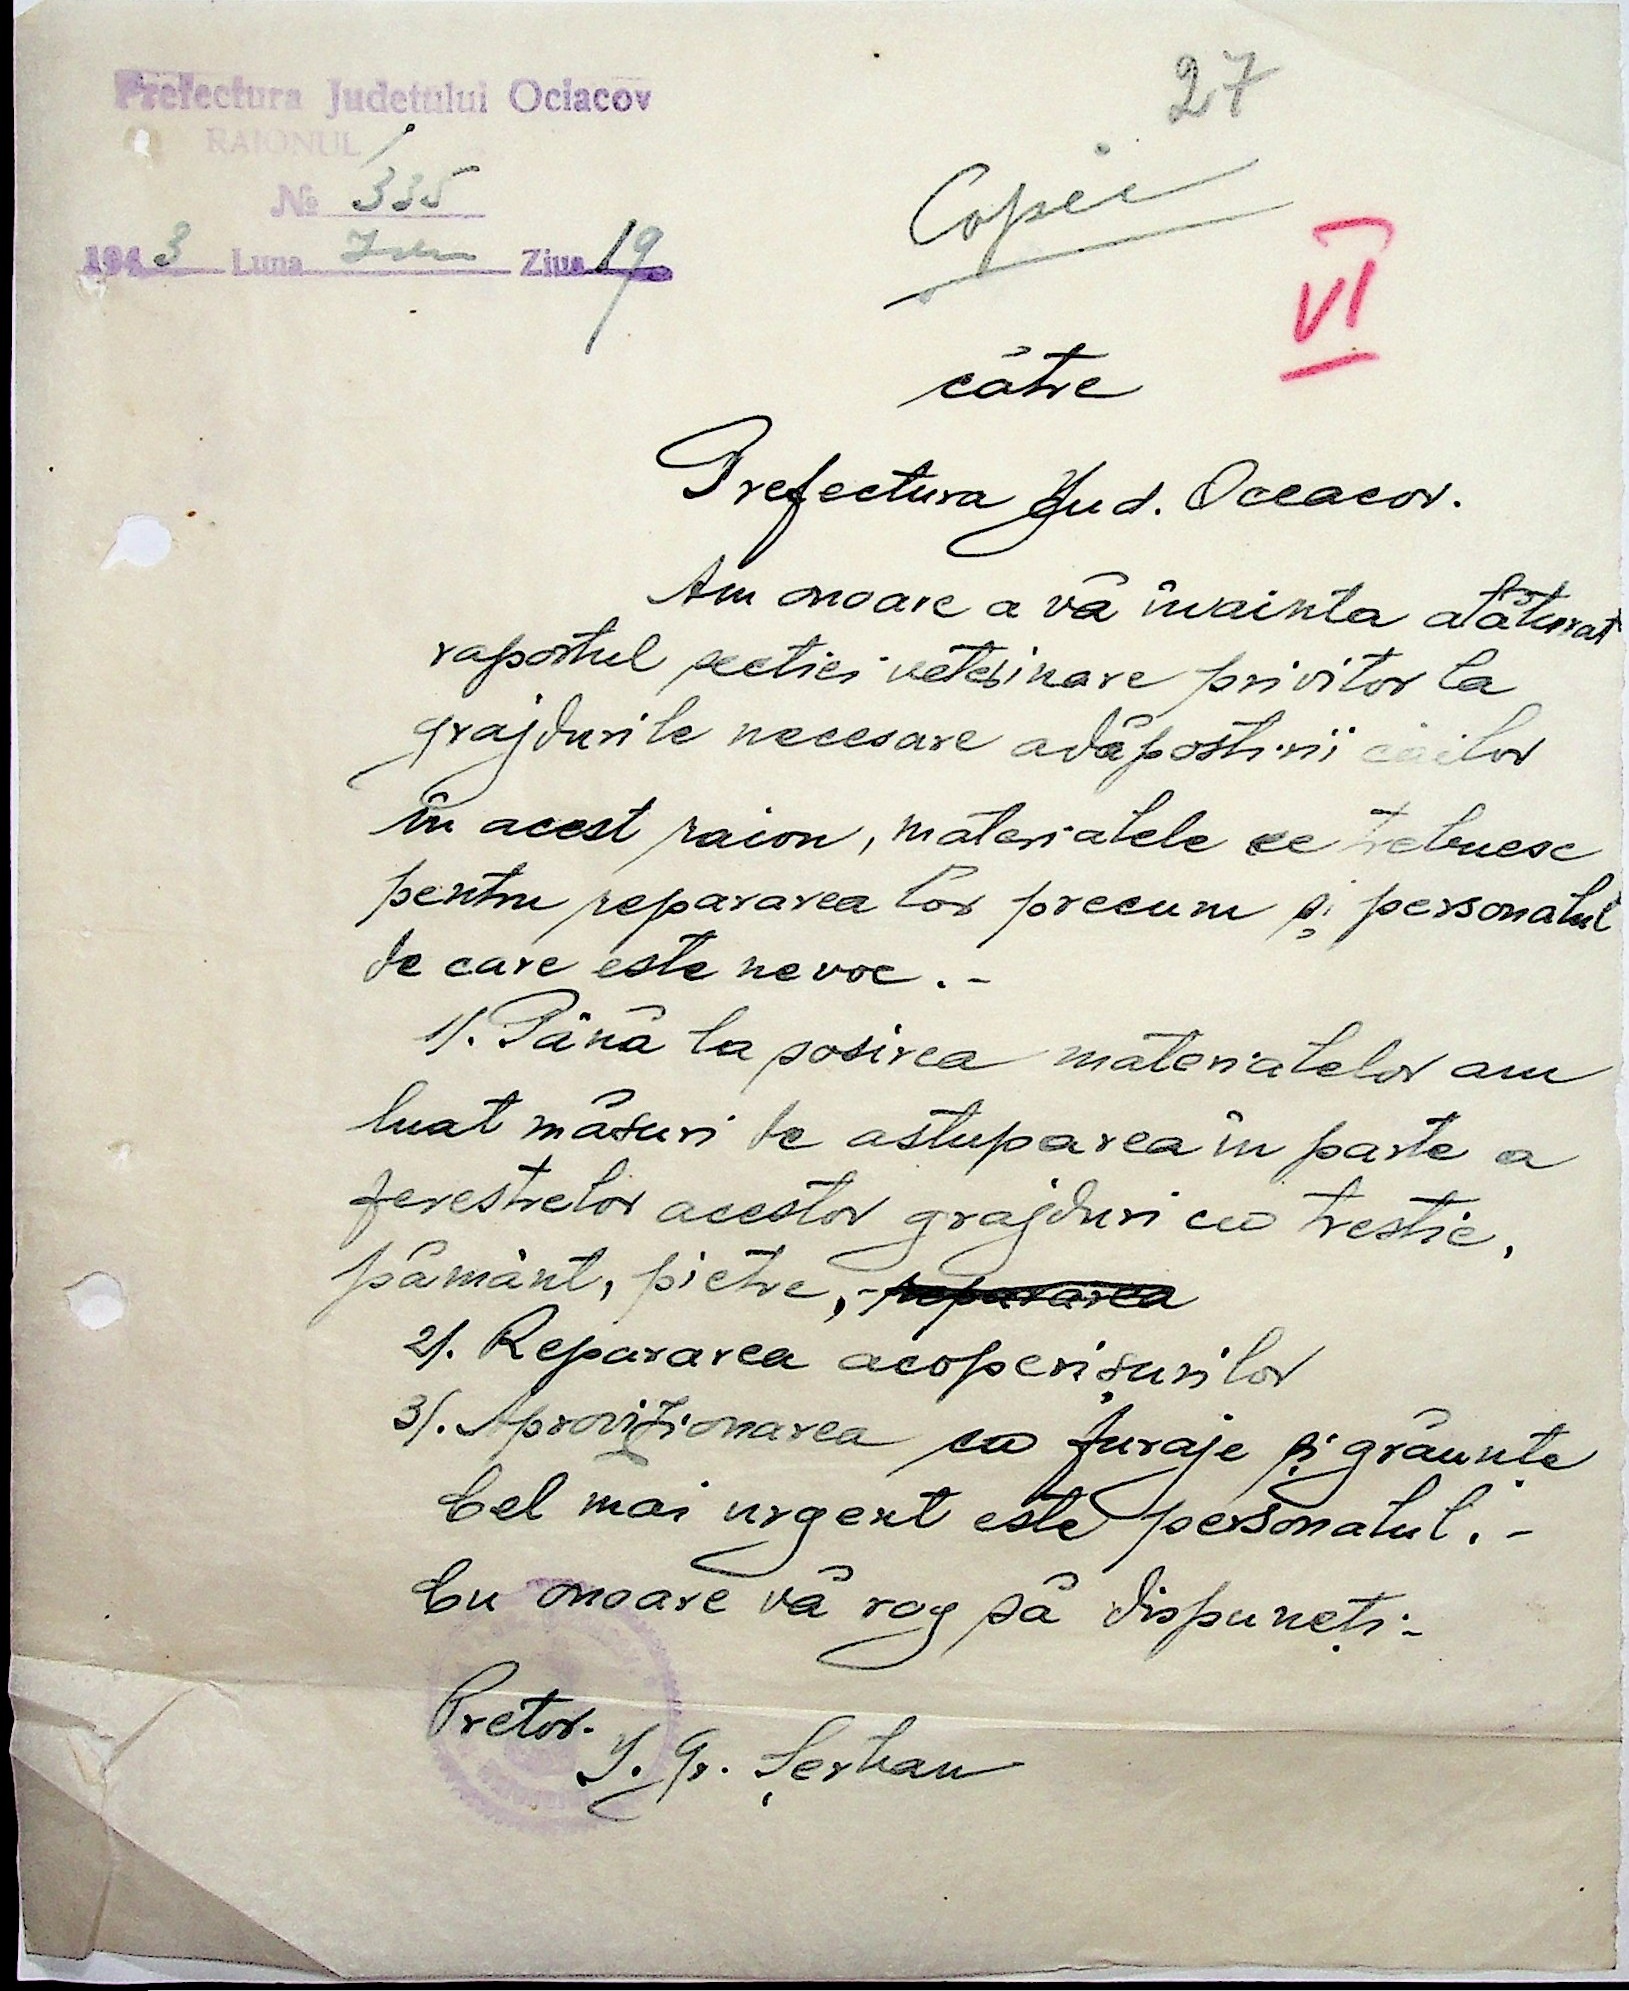 27
Prefectura Județului Ociacov
RAIONUL
№ 335
1943 Luna Ziua 19
Copie
VI
către
Prefectura Jud. Oceacov.
Am onoare a vă înainta alăturat
raportul secției veterinare privitor la
grajdurile necesare adăpostirii cailor
în acest raion, materialele ce trebuesc
pentru repararea lor precum și personalul
de care este nevoe.-
1/. Până la sosirea materialelor am
luat măsuri de astuparea în parte a
ferestrelor acestor grajduri cu trestie,
pământ, pietre,- repararea
2/. Repararea acoperișurilor
3/. Aprovizionarea cu furaje și grăunțe
Cel mai urgent este personalul.-
Cu onoare vă rog să dispuneți-
Pretor.
I. Gr. Șerban